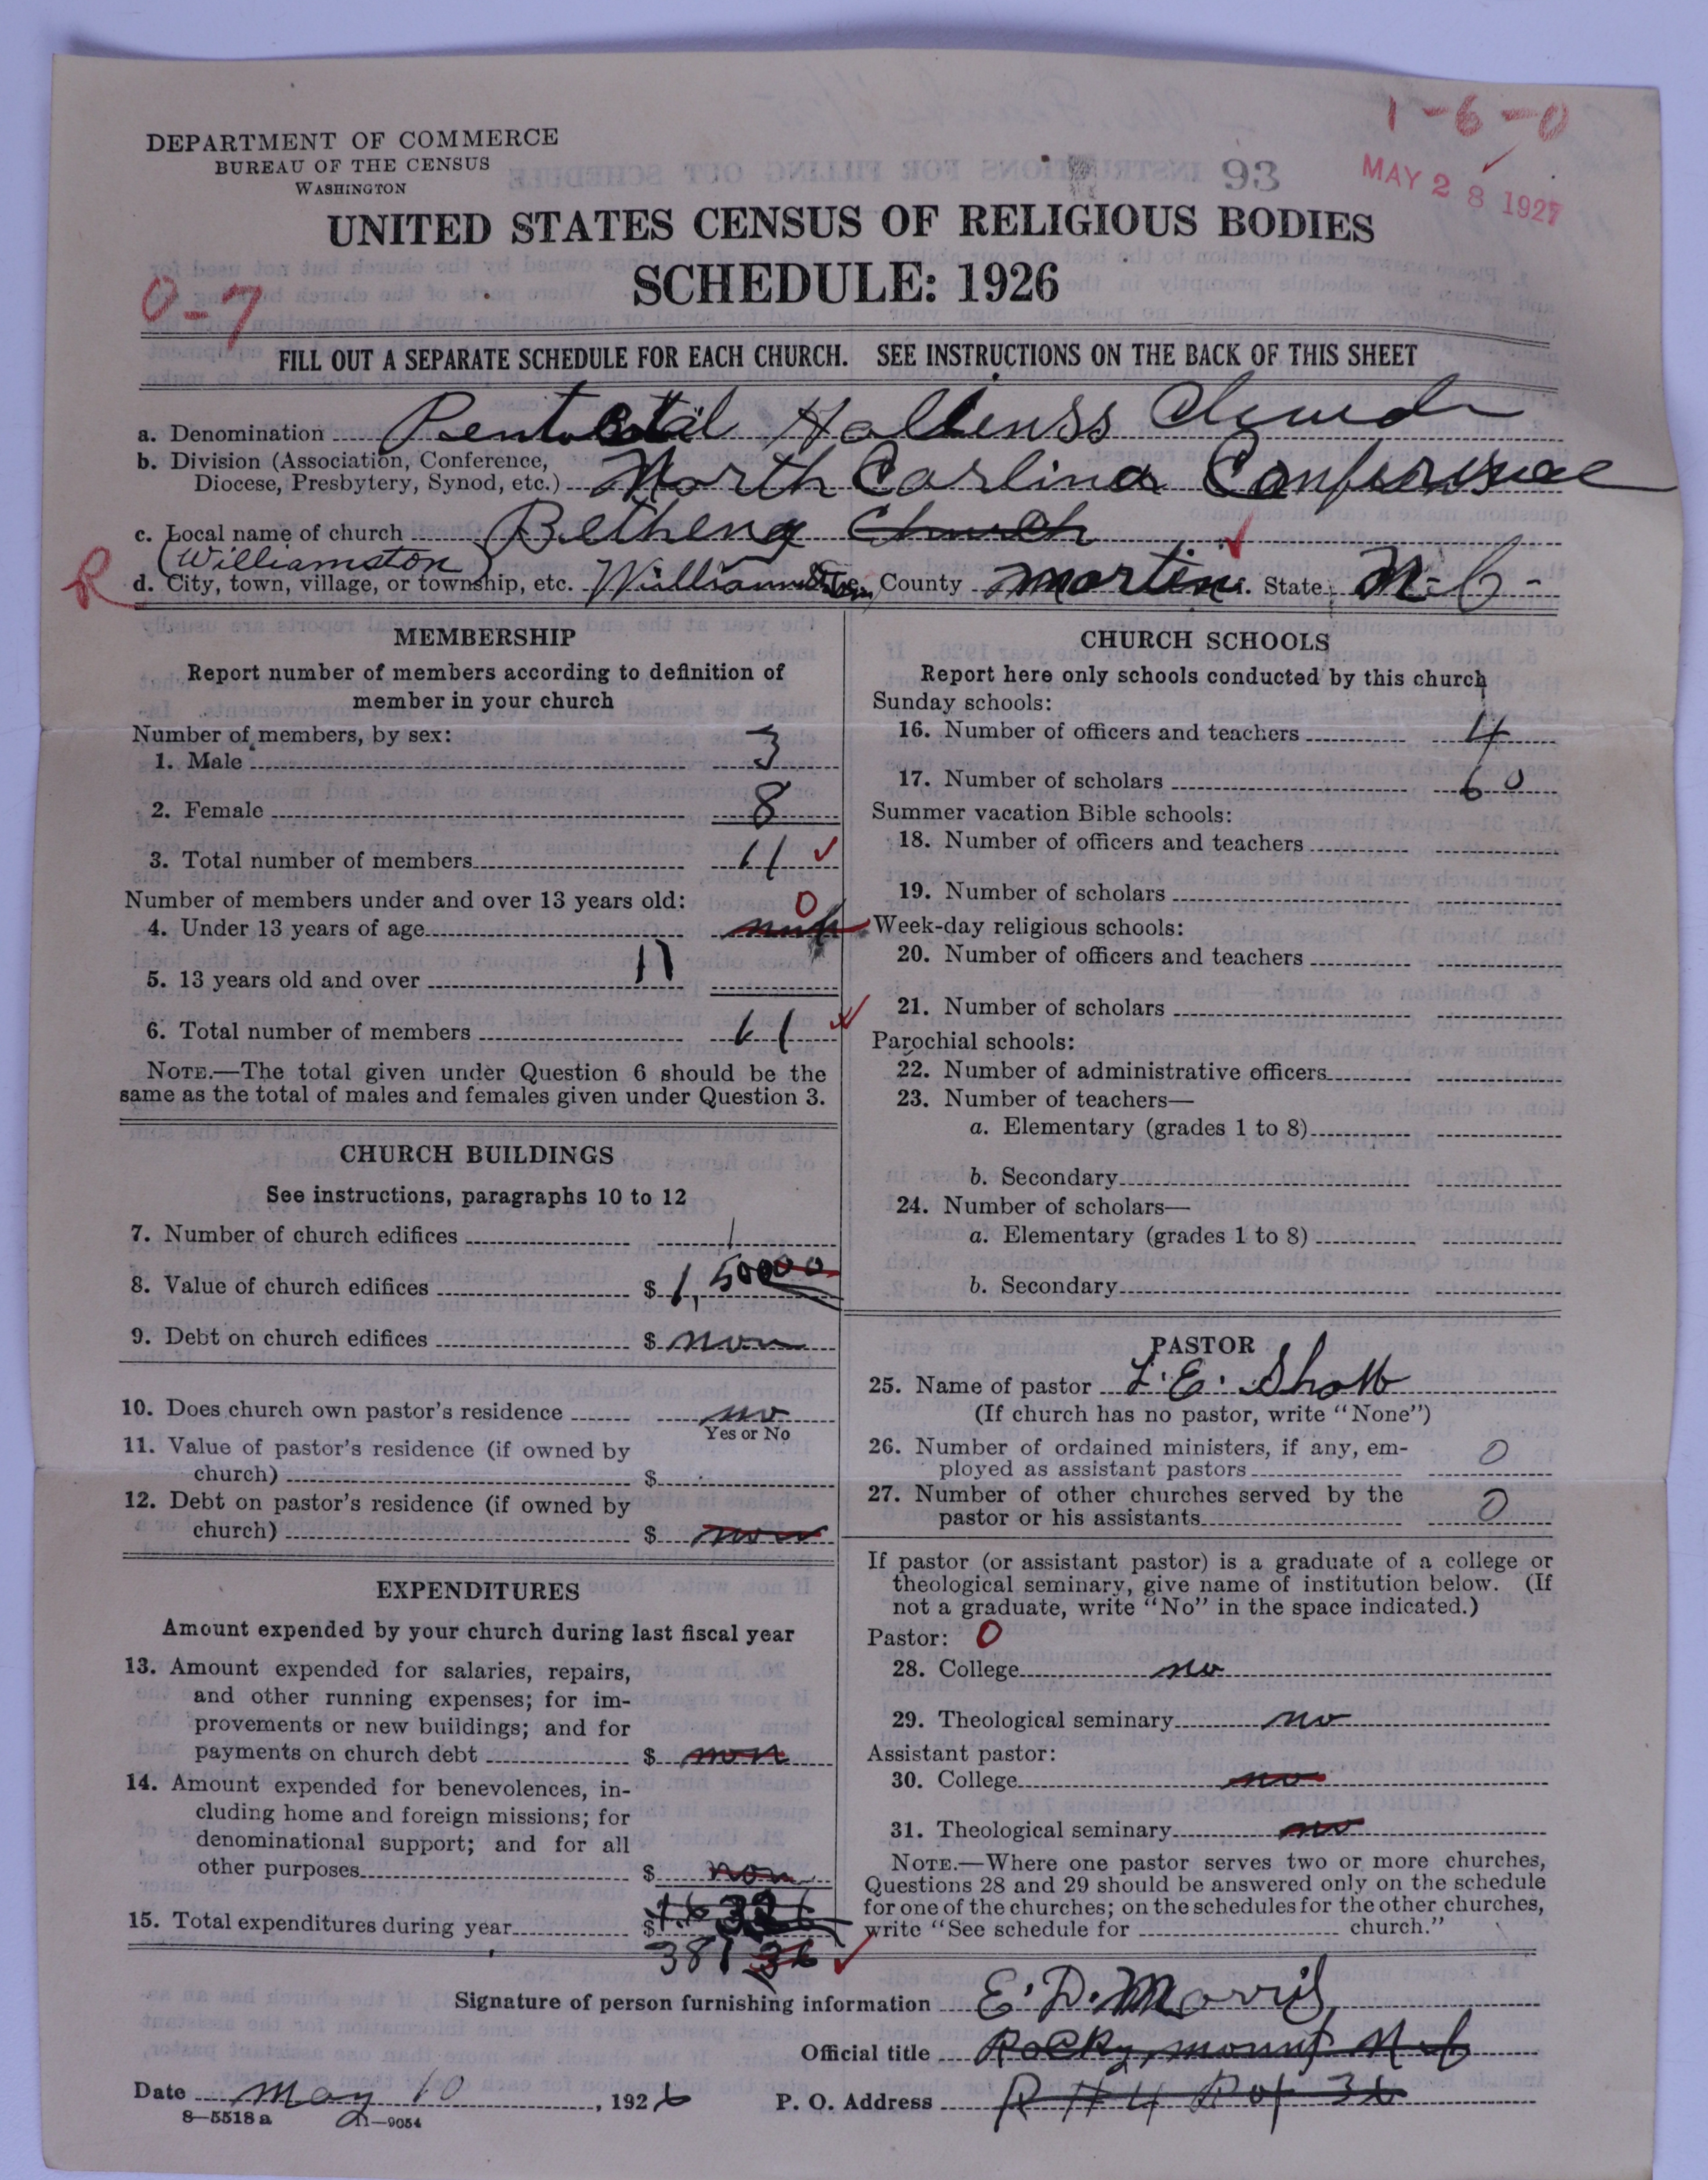 1-6-0
DEPARTMENT OF COMMERCE
BUREAU OF THE CENSUS
WASHINGTON
93
MAY 28 1927
UNITED STATES CENSUS OF RELIGIOUS BODIES
SCHEDULE: 1926
0-7
FILL OUT A SEPARATE SCHEDULE FOR EACH CHURCH. SEE INSTRUCTIONS ON THE BACK OF THIS SHEET
a. Denomination Pentecostal Holienss Church
b. Division (Association, Conference,
Diocese, Presbytery, Synod, etc.) North Carlina Conference
c. Local name of church Betheny Church
(Williamston)
R d. City, town, village, or township, etc. Williamston County Martin State N-C-
MEMBERSHIP
Report number of members according to definition of
member in your church
Number of members, by sex:
1. Male 3
2. Female 8
3. Total number of members 11
Number of members under and over 13 years old:
4. Under 13 years of age 0
5. 13 years old and over 11
6. Total number of members 11
NOTE.—The total given under Question 6 should be the
same as the total of males and females given under Question 3.
CHURCH BUILDINGS
See instructions, paragraphs 10 to 12
7. Number of church edifices 1
8. Value of church edifices $ 1,50000
9. Debt on church edifices $ non
10. Does church own pastor's residence no
Yes or No
11. Value of pastor's residence (if owned by
church) $
12. Debt on pastor's residence (if owned by
church) $ non
EXPENDITURES
Amount expended by your church during last fiscal year
13. Amount expended for salaries, repairs,
and other running expenses; for im-
provements or new buildings; and for
payments on church debt $ non
14. Amount expended for benevolences, in-
cluding home and foreign missions; for
denominational support; and for all
other purposes $ non
15. Total expenditures during year $
381 36
CHURCH SCHOOLS
Report here only schools conducted by this church
Sunday schools:
16. Number of officers and teachers 4
17. Number of scholars 60
Summer vacation Bible schools:
18. Number of officers and teachers
19. Number of scholars
Week-day religious schools:
20. Number of officers and teachers
21. Number of scholars
Parochial schools:
22. Number of administrative officers
23. Number of teachers—
a. Elementary (grades 1 to 8)
b. Secondary
24. Number of scholars—
a. Elementary (grades 1 to 8)
b. Secondary
PASTOR
25. Name of pastor L. E. 
(If church has no pastor, write "None")
26. Number of ordained ministers, if any, em-
ployed as assistant pastors 0
27. Number of other churches served by the
pastor or his assistants 0
If pastor (or assistant pastor) is a graduate of a college or
theological seminary, give name of institution below. (If
not a graduate, write "No" in the space indicated.)
Pastor: 0
28. College no
29. Theological seminary no
Assistant pastor:
30. College no
31. Theological seminary no
NOTE.—Where one pastor serves two or more churches,
Questions 28 and 29 should be answered only on the schedule
for one of the churches; on the schedules for the other churches,
write "See schedule for church."
Signature of person furnishing information E. D. Morris
Official title Rocky mount N-C
Date May 10, 1926 P. O. Address R #4 36
8—5518 a 11—9054